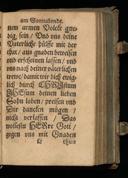 am Sonnabende.
nen armen Volcke gnä-
dig, sein / Und uns deine
Väterliche hülffe mit der
that / aus gnaden beweisen
und erscheinen lassen / und
uns nach deiner väterlichen
weise / damit wir dich ewig-
lich durch CHRistum
JHEsum deinen lieben
Sohn loben / preisen und
Dir dancken mögen /
nicht verlassen / Das
wollestu HERre Gott /
gegen uns mit Gnaden
thun